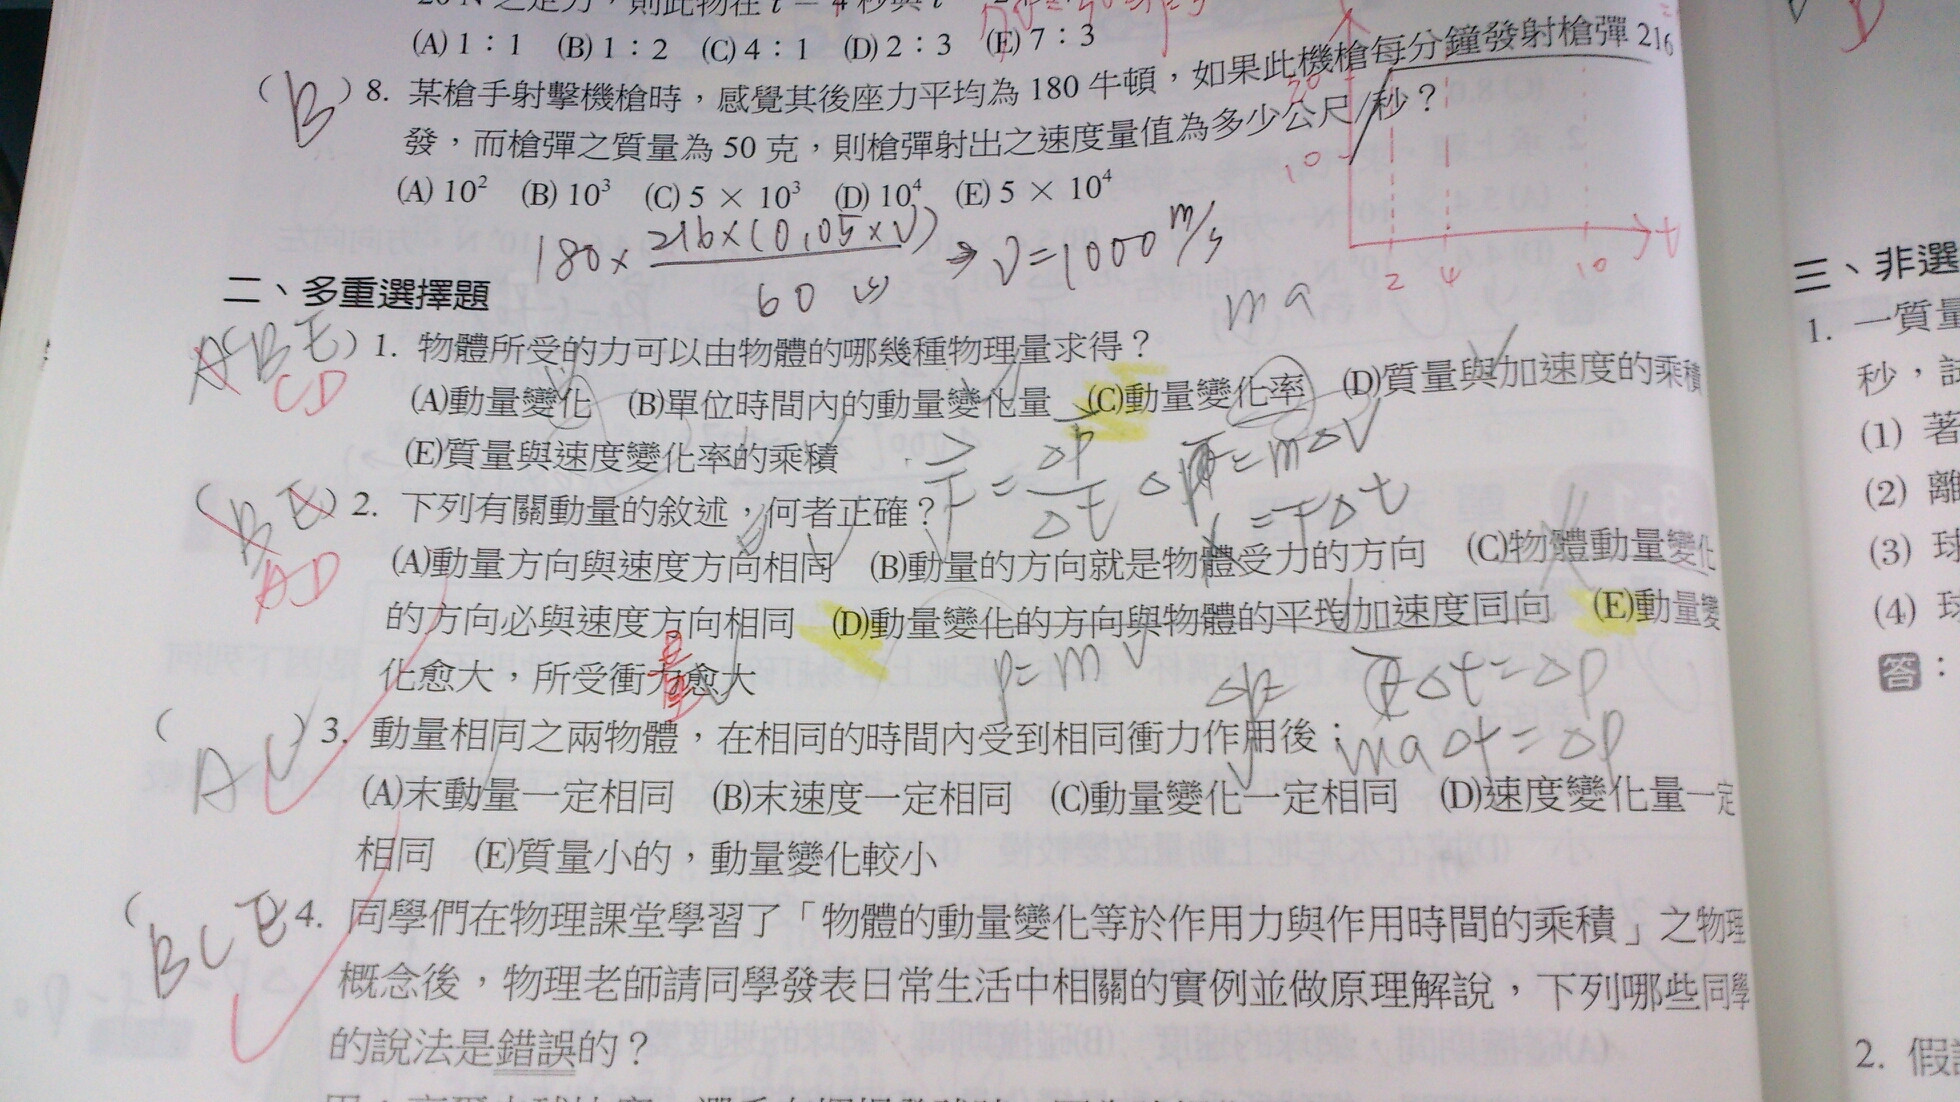 (A) 1：1 (B) 1：2 (C) 4：1 (D) 2：3 (E) 7：3
(B) 8. 某槍手射擊機槍時，感覺其後座力平均為 180 牛頓，如果此機槍每分鐘發射槍彈 216
發，而槍彈之質量為 50 克，則槍彈射出之速度量值為多少公尺/秒？
(A) 10² (B) 10³ (C) 5 × 10³ (D) 10⁴ (E) 5 × 10⁴
180× 216×(0.05×V) / 60 → V=1000 m/s
20
10
2 4 10 t
二、多重選擇題
ma
(ABE) 1. 物體所受的力可以由物體的哪幾種物理量求得？
CD
(A)動量變化 (B)單位時間內的動量變化量 (C)動量變化率 (D)質量與加速度的乘積
(E)質量與速度變化率的乘積
F = Δp / Δt Δp = mΔV
= FΔt
(BE) 2. 下列有關動量的敘述，何者正確？
AD
(A)動量方向與速度方向相同 (B)動量的方向就是物體受力的方向 (C)物體動量變化
的方向必與速度方向相同 (D)動量變化的方向與物體的平均加速度同向 (E)動量變
化愈大，所受衝力愈大
量
p=mV
Δp= FΔt=Δp
maΔt=Δp
(AC) 3. 動量相同之兩物體，在相同的時間內受到相同衝力作用後：
(A)末動量一定相同 (B)末速度一定相同 (C)動量變化一定相同 (D)速度變化量一定
相同 (E)質量小的，動量變化較小
(BCE 4. 同學們在物理課堂學習了「物體的動量變化等於作用力與作用時間的乘積」之物理
概念後，物理老師請同學發表日常生活中相關的實例並做原理解說，下列哪些同學
的說法是錯誤的？
三、非選
1. 一質量
秒，試
(1) 著
(2) 離
(3) 球
(4) 球
答：
2. 假設